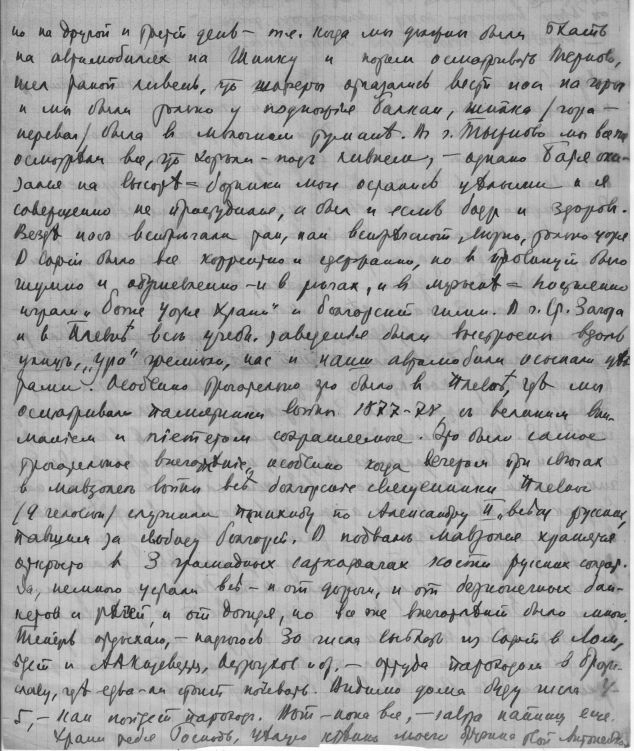 но на другой и третій день – же. Когда мы должны были ѣхать
на автомобиляхъ на Шипку и потомъ осматривать Тернов,
шел такой ливень, что шоферы отказались везти нас на горы
и мы были только у подножія балкан, шипка /гора –
перевал/ была в туманѣ. В г. Тырново мы
осмотрѣли все, что хотѣли – под ливнем, – однако
на высотѣ = ботинки мои остались цѣлыми и я
совершенно не простудился, и был и есмь бодр и здоров.
Вездѣ нас встрѣчали так, как встрѣчают, только царя
В Софіи было все корректно и сдержанно, но в провинціи было
шумно и – и в рѣчах, и в музыкѣ =
играли „боже царя храни" и болгарскій гимн. В г. Ст. Загора
и в Плевнѣ всѣ учебн. заведенія были выстроены вдоль
улицъ, „ура" гремѣло, нас и наши автомобили осыпали цвѣ-
тами. Особенно трогательно это было в Плевнѣ, гдѣ мы
осматривали памятники войны 1877-78, с великим вни-
маніем и піететом сохраняемое. Это было самое
трогательное, особенно когда вечером при свѣчах
в мавзолеѣ войны всѣ болгарскіе священники Плевны
/9 человѣк/ служили панихиду по Александру II и всѣм русским,
павшим за свободу Болгаріи. В подвалѣ мавзолея хранятся
открыто в 3 громадных саркофагах кости русских солдат.
Да, немного устали всѣ – и от дороги, и от безконечных бан-
кетов и рѣчей, и от дождя, но все же впечатлѣній было много.
Теперь отдыхаю, – 30 числа выѣзд из Софіи в Лом,
ѣдет и А.А. Кизеветтер, и др., – оттуда пароходом в Брати-
славу, гдѣ едва-ли стоит ночевать. Видимо дома буду числа 4-
5, – как пойдет пароход. Вот – пока все, – завтра напишу еще.
Храни тебя Господь, цѣлую моего твой